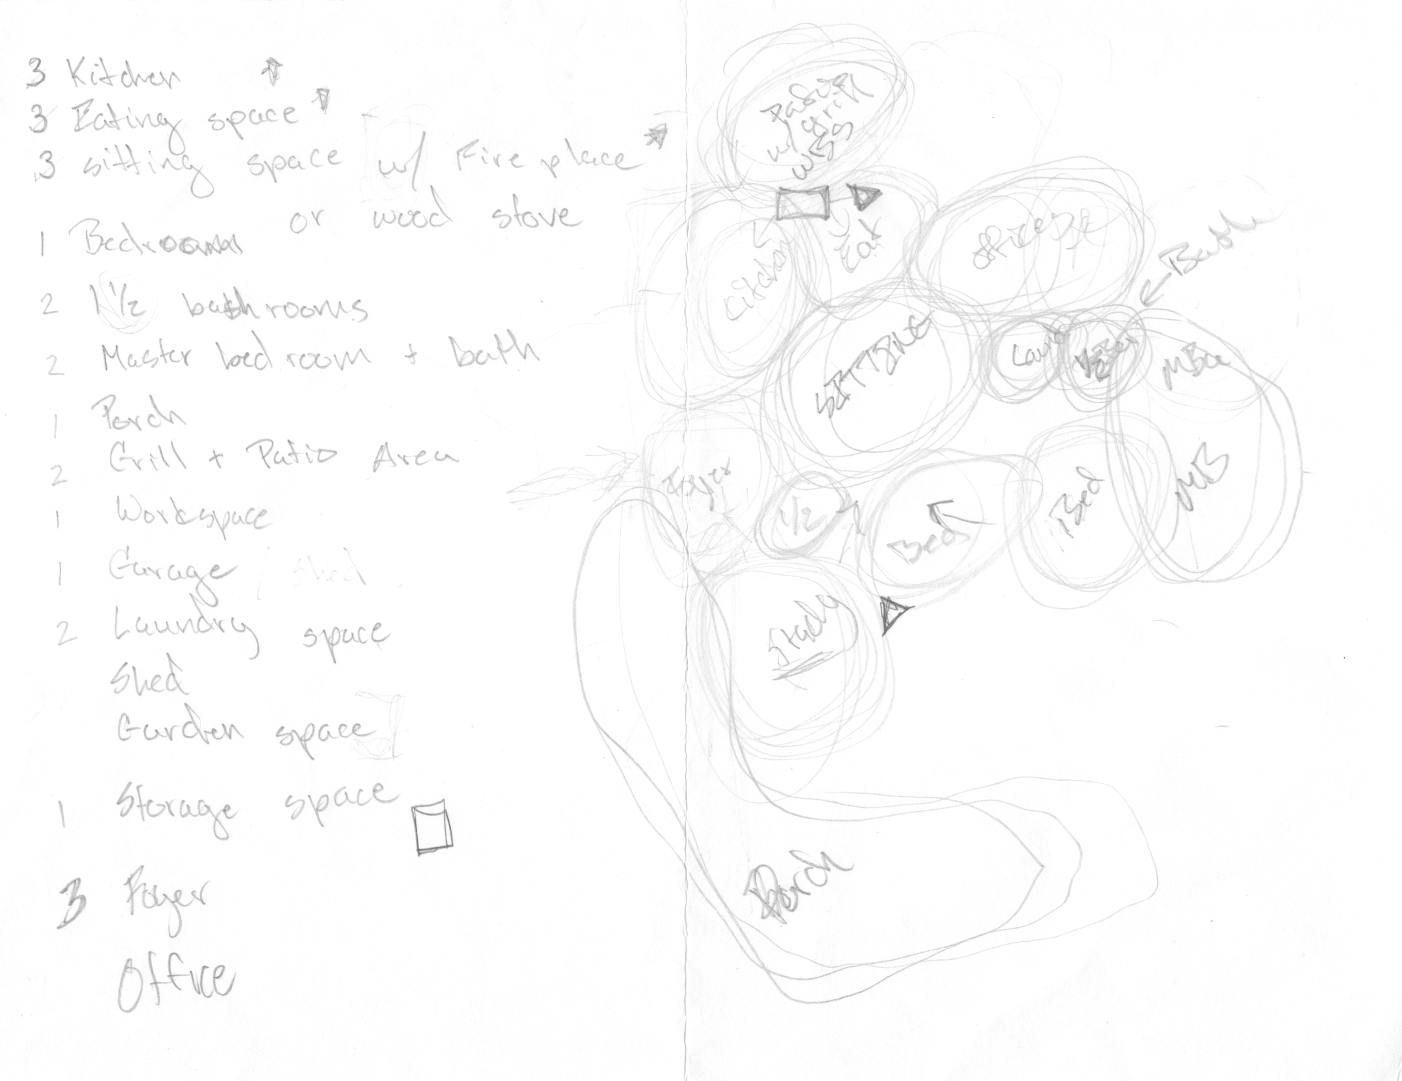 3 Kitchen
3 Eating space
3 sitting space w/ Fire place
or wood stove
1 Bedrooms
2 1 1/2 bathrooms
2 Master bedroom + bath
1 Porch
2 Grill + Patio Area
1 Workspace
1 Garage / Shed
2 Laundry space
Shed
Garden space
1 Storage space
3 Foyer
Office
Patio
w/ grill
Kitchen
Eat
office
Bath
SITTING
Laun
1/2
MBa
Foyer
1/2
Bed
Bed
MB
Study
Porch